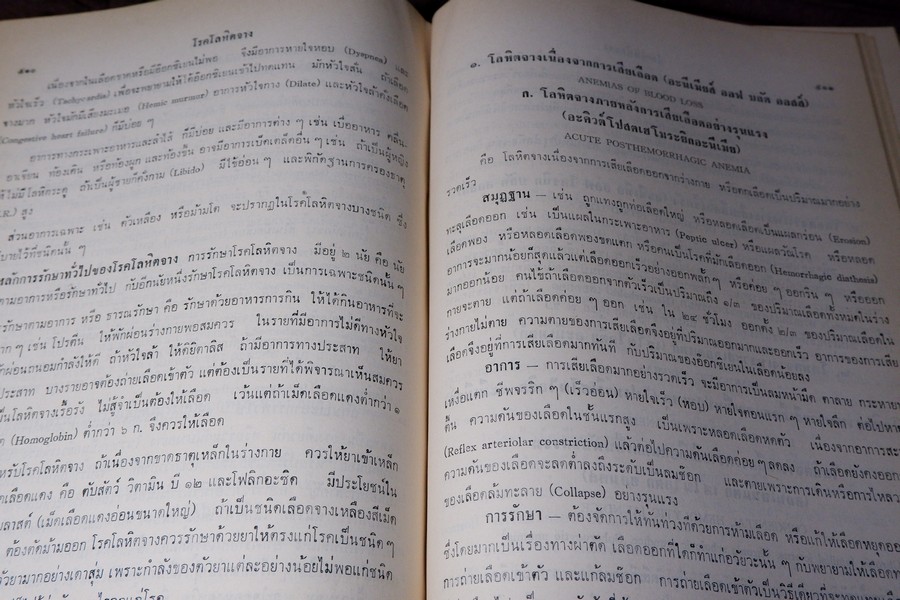 ๕๑๐
โรคโลหิตจาง
เนื่องจากในเลือดจากหรือมีอ๊อกซิเจนไม่พอ จึงมีอาการหายใจหอบ (Dyspnea) และ
หัวใจเร็ว (Tachycardia) เพื่อจะพยายามให้ได้อ๊อกซิเจนเข้าไปทดแทน มักหัวใจสั่น ถ้าเลือด
จางมาก หัวใจมักมีเสียงมะเมอ (Hemic murmur) อาการหัวใจกาง (Dilate) และหัวใจล้าคั่งเลือด
(Congestive heart failure) ก็มีบ่อย ๆ
อาการทางกระเพาะอาหารและลำไส้ ก็มีบ่อย และมีอาการต่าง ๆ เช่น เบื่ออาหาร คลื่น
อาเจียน ท้องเดิน หรือท้องผูก และท้องขึ้น อาจมีอาการเบ็ดเตล็ดอื่น ๆ เช่น ถ้าเป็นผู้หญิง
ไม่มีโลหิตระดู ถ้าเป็นผู้ชายก็ตึงกาม (Libido) มีไข้อ่อน ๆ และพิกัดฐานการครองธาตุ
.R.) สูง
ส่วนอาการเฉพาะ เช่น ตัวเหลือง หรือม้ามโต จะปรากฏในโรคโลหิตจางบางชนิด ซึ่ง
บายไว้ที่ชนิดนั้น ๆ
หลักการรักษาทั่วไปของโรคโลหิตจาง การรักษาโรคโลหิตจาง มีอยู่ ๒ นัย คือ นัย
ตามอาการหรือรักษาทั่วไป กับอีกนัยหนึ่งรักษาโรคโลหิตจาง เป็นการเฉพาะชนิดนั้น ๆ
รักษาตามอาการ หรือ ธารณรักษา คือ รักษาด้วยอาหารการกิน ให้ได้กินอาหารที่จะ
าก ๆ เช่น โปรตีน ให้พักผ่อนร่างกายพอสมควร ในรายที่มีอาการไม่ดีทางหัวใจ
พักผ่อนถนอมกำลังให้ดี ถ้าหัวใจล้า ให้ดิยิตาลิส ถ้ามีอาการทางประสาท ให้ยา
ประสาท บางรายอาจต้องถ่ายเลือดเข้าตัว แต่ต้องเป็นรายที่ได้พิจารณาเห็นสมควร
เป็นโลหิตจางเรื้อรัง ไม่สู้จำเป็นต้องให้เลือด เว้นแต่ถ้าเม็ดเลือดแดงต่ำกว่า ๑
(Homoglobin) ต่ำกว่า ๖ ก. จึงควรให้เลือด
หรับโรคโลหิตจาง ถ้าเนื่องจากขาดธาตุเหล็กในร่างกาย ควรให้ยาเข้าเหล็ก
ดเลือดแดง คือ ตับสัตว์ วิตามิน บี ๑๒ และโฟลิกอะซิด มีประโยชน์ใน
บลาสต์ (เม็ดเลือดแดงอ่อนขนาดใหญ่) ถ้าเป็นชนิดเลือดจางเหลืองสีเม็ด
ต้องตัดม้ามออก โรคโลหิตจางควรรักษาด้วยยาให้ตรงแก่โรคเป็นชนิด ๆ
ตัวยามากอย่างเดาสุ่ม เพราะกำลังของตัวยาแต่ละอย่างน้อยไม่พอแก่ชนิด
๕๑๑
๑. โลหิตจางเนื่องจากการเสียเลือด (อะนีเมียส์ ออฟ บลัด ลอสส์)
ANEMIAS OF BLOOD LOSS
ก. โลหิตจางภายหลังการเสียเลือดอย่างรุนแรง
(อะคิวต์โปสตเฮโมระยิกอะนีเมีย)
ACUTE POSTHEMORRHAGIC ANEMIA
คือ โลหิตจางเนื่องจากการเสียเลือดออกจากร่างกาย หรือตกเลือดเป็นปริมาณมากอย่าง
รวดเร็ว
สมุฏฐาน — เช่น ถูกแทงถูกท่อเลือดใหญ่ หรือหลอดเลือดเป็นแผลกร่อน (Erosion)
ทะลุเลือดออก เช่น เป็นแผลในกระเพาะอาหาร (Peptic ulcer) หรือแผลวัณโรค หรือหลอด
เลือดพอง หรือหลอดเลือดพองขดแตก หรือคนเป็นโรคที่มักเลือดออก (Hemorrhagic diathesis)
อาการจะมากน้อยก็สุดแล้วแต่เลือดออกเร็วอย่างออกพลั้ก ๆ หรือค่อย ๆ ออกริน ๆ หรือออก
มากออกน้อย คนไข้ถ้าเลือดออกจากตัวเร็วเป็นปริมาณถึง ๑/๓ ของปริมาณเลือดทั้งหมดในร่าง
กายจะตาย แต่ถ้าเลือดค่อย ๆ ออก เช่น ใน ๒๔ ชั่วโมง ออกตั้ง ๒/๓ ของปริมาณเลือดใน
ร่างกายไม่ตาย ความตายของการเสียเลือดจึงอยู่ที่ปริมาณออกมากและออกเร็ว อาการของการเสีย
เลือดจึงอยู่ที่การเสียเลือดมากทันที กับปริมาณของอ็อกซิเยนในเลือดน้อยลง
อาการ — การเสียเลือดมากอย่างรวดเร็ว จะมีอาการเป็นลมหน้ามืด ตาลาย กระหายน
เหงื่อแตก ชีพจรริก ๆ (เร็วอ่อน) หายใจเร็ว (หอบ) หายใจตอนแรก ๆ หายใจลึก ต่อไปหาย
ตื้น ความดันของเลือดในชั้นแรกสูง เป็นเพราะหลอดเลือดหดตัว เนื่องจากอาการสะ
(Reflex arteriolar constriction) แล้วต่อไปความดันเลือดค่อย ๆ ลดลง ถ้าเลือดยังคงออก
ความดันของเลือดจะลดต่ำลงถึงระดับเป็นลมช๊อก และตายเพราะการเดินหรือการไหลว
ของเลือดล้มทะลาย (Collapse) อย่างรุนแรง
การรักษา — ต้องจัดการให้ทันท่วงทีด้วยการห้ามเลือด หรือแก้ให้เลือดหยุดออก
ซึ่งโดยมากเป็นเรื่องทางผ่าตัด เลือดออกที่ใดก็ทำแก่อวัยวะนั้น ๆ กับพยายามให้เลือด
การถ่ายเลือดเข้าตัว และแก้ลมช๊อก การถ่ายเลือดเข้าตัวเป็นวิธีเดียวที่จะทดแทนเลือ